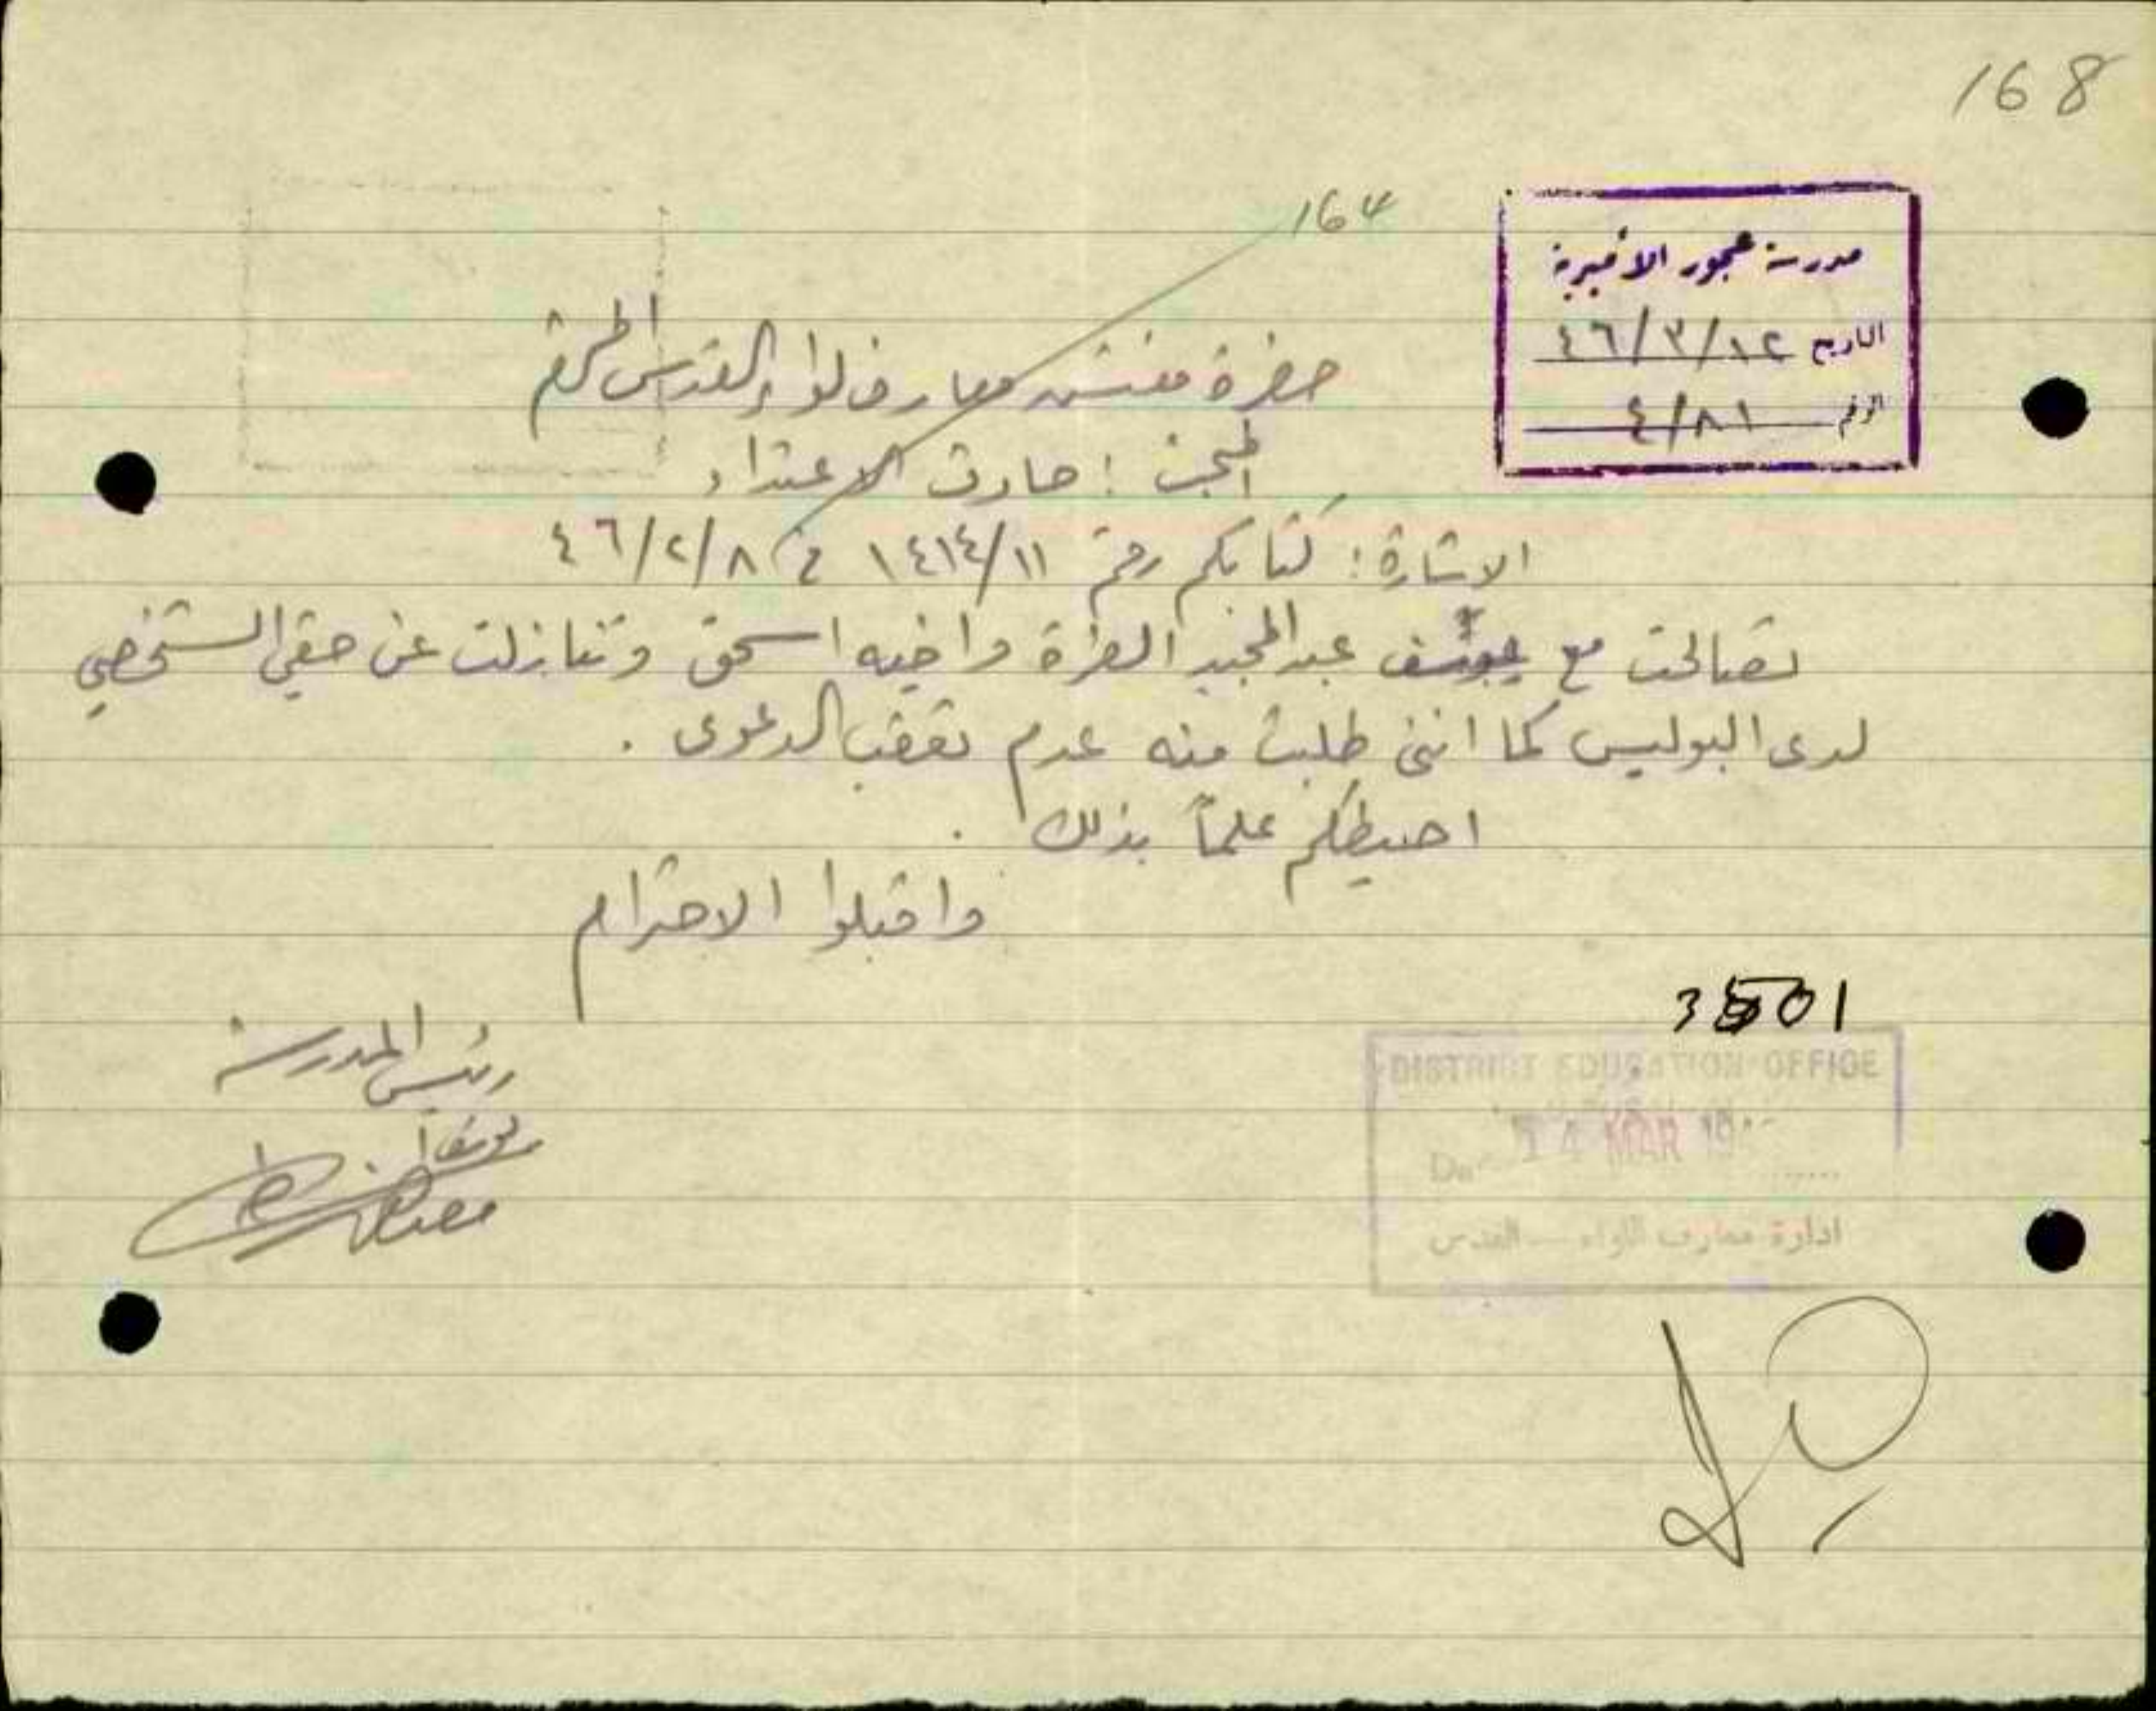 168
164
مدرسة عجور الاميرية
التاريخ ٤٦/٣/١٢
الرقم ٤/٨١
حضرة مفتش معارف لواء القدس المحترم
المبحث : حادث الاعتداء
الاشارة : كتابكم رقم ١٤١٤/١١ في ٤٦/٢/٨
تصالحت مع يوسف عبد المجيد العزة واخيه اسحق وتنازلت عن حقي الشخصي
لدى البوليس كما انني طلبت منه عدم تعقب الدعوى .
احيطكم علماً بذلك .
واقبلوا الاحترام
رئيس المدرسة
DISTRICT EDUCATION OFFICE
14 MAR 19
ادارة معارف اللواء — القدس